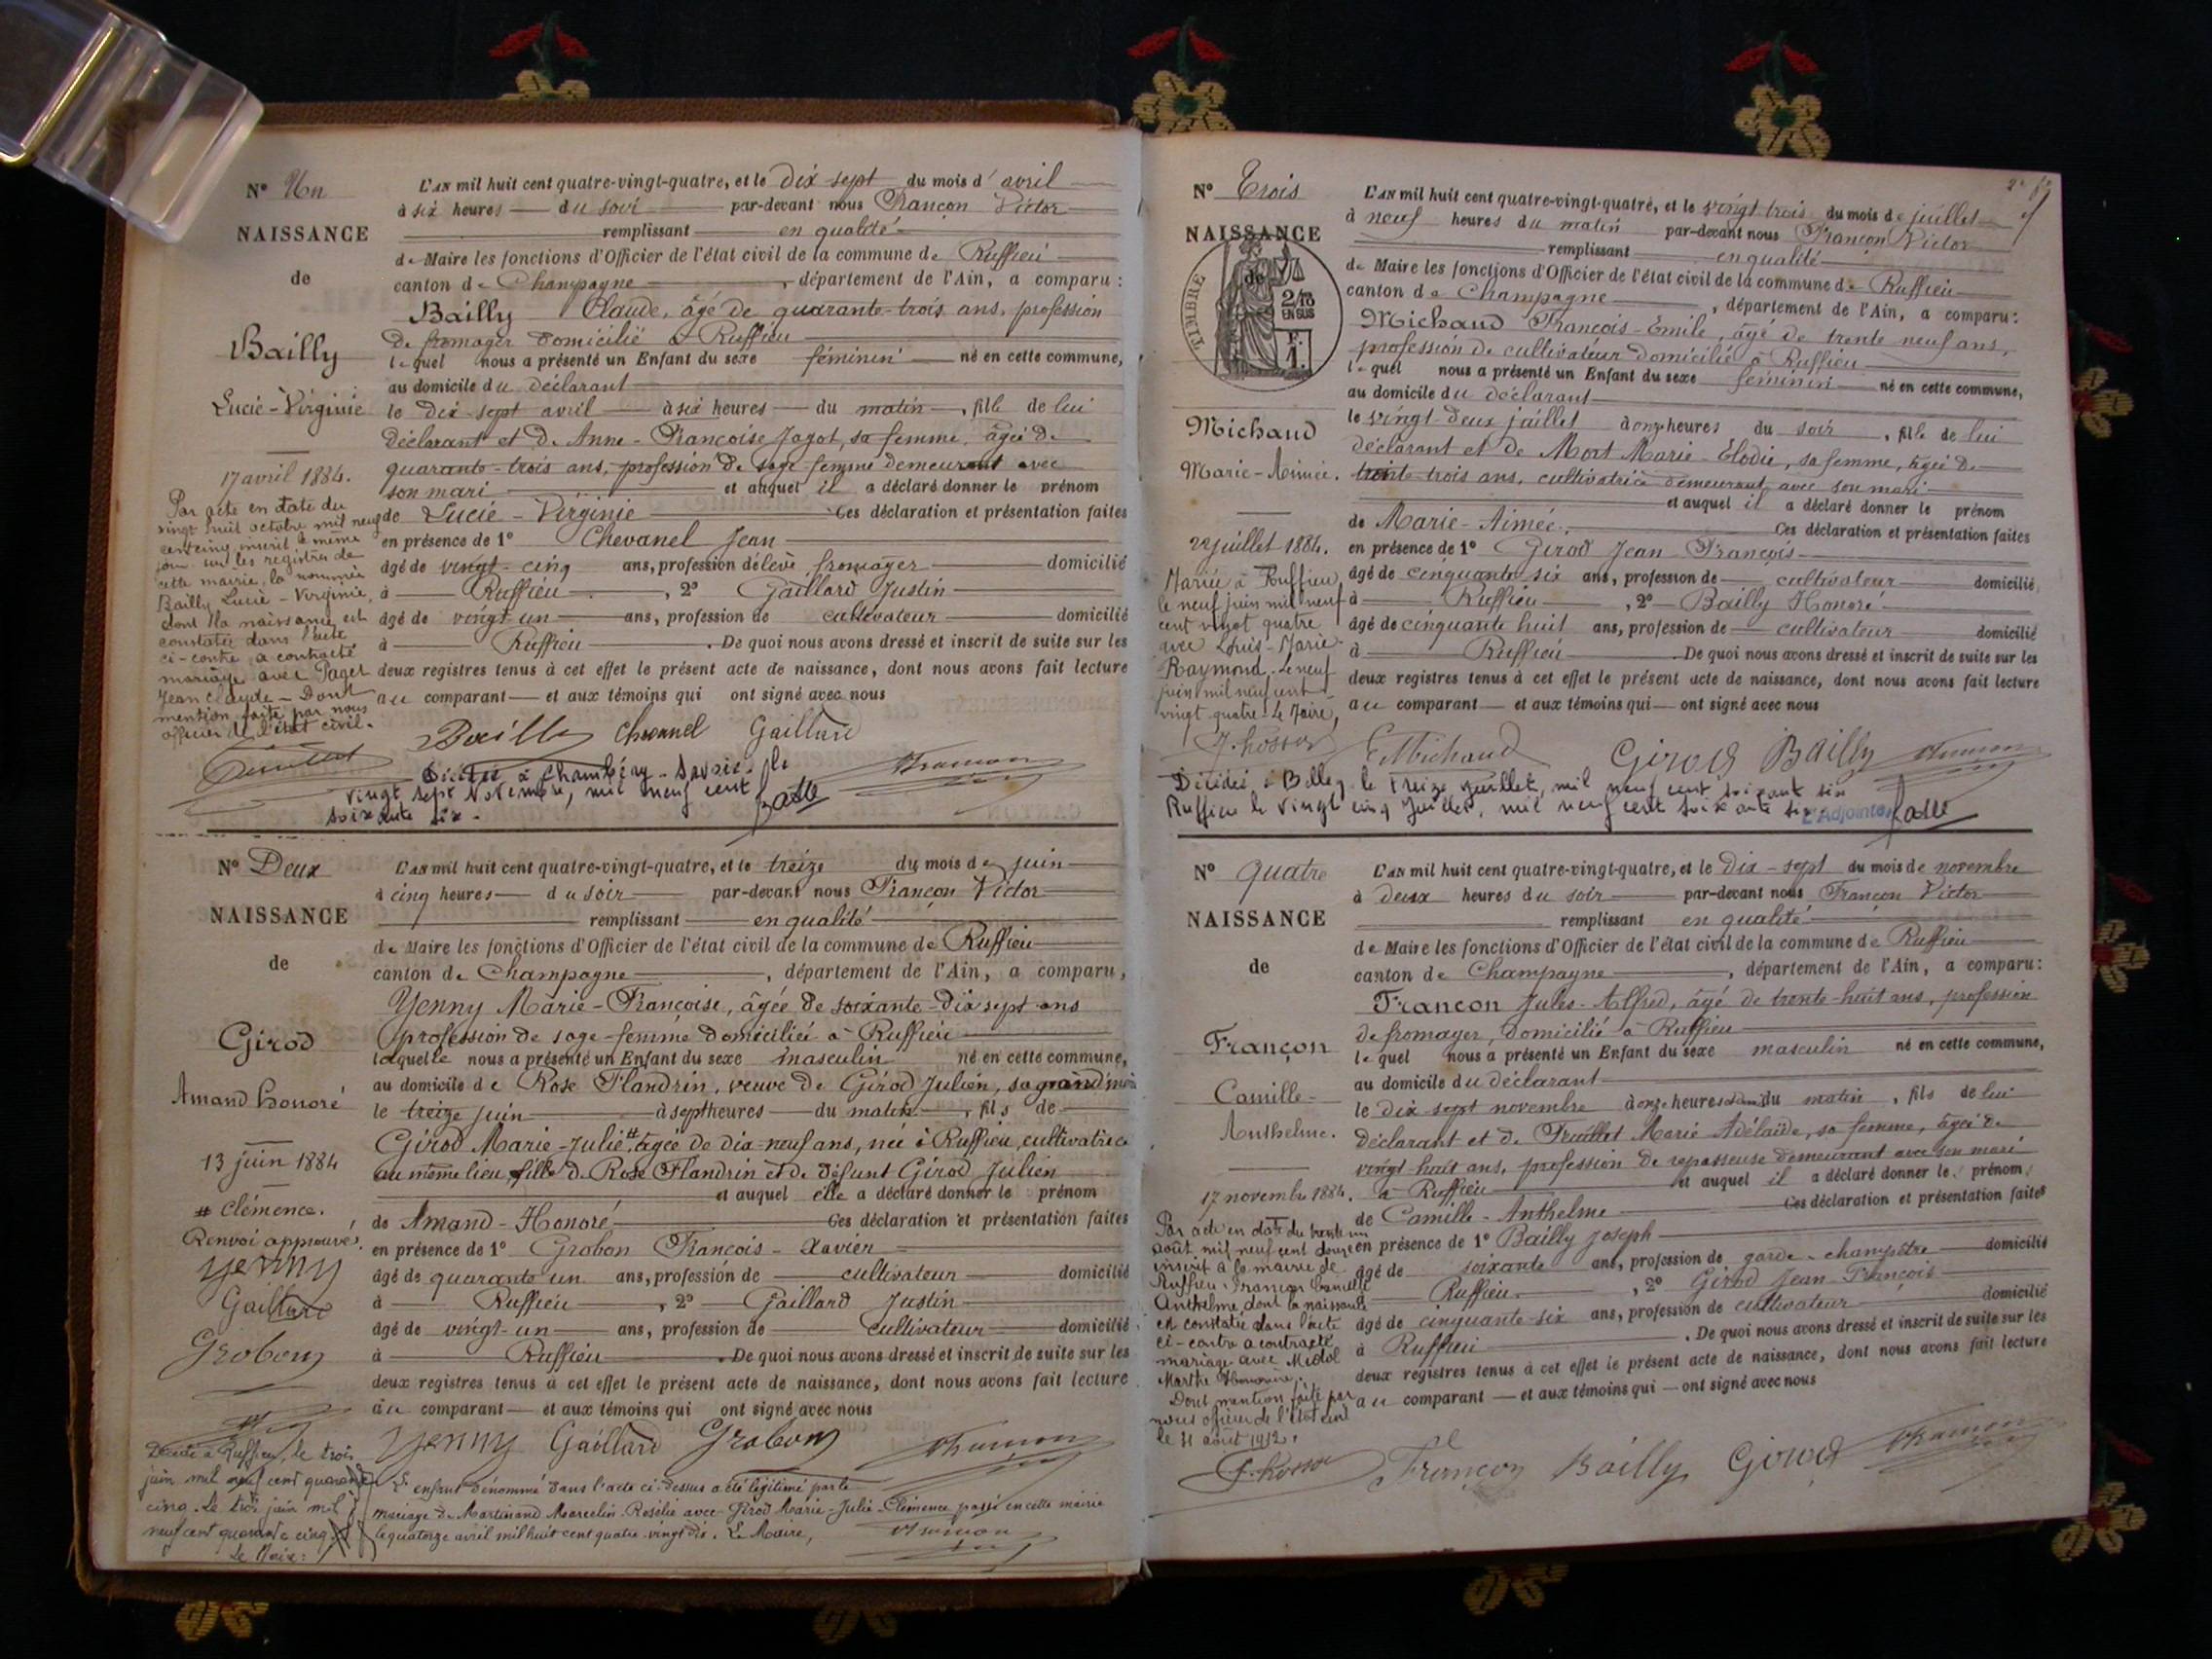 N° Un
NAISSANCE
de
Bailly
Lucie-Virginie
17 avril 1884.
Par acte en date du
vingt huit octobre mil neuf
cent cinq inscrit le même
jour sur les registres de
cette mairie, la nommée
Bailly Lucie-Virginie,
dont la naissance est
constatée dans l'acte
ci-contre a contracté
mariage avec Paget
Jean Claude - Dont
mention faite par nous
officier de l'état civil.
L'AN mil huit cent quatre-vingt-quatre, et le dix sept du mois d'avril
à six heures du soir par-devant nous Françon Victor
remplissant en qualité
de Maire les fonctions d'Officier de l'état civil de la commune de Ruffieu
canton de Champagne, département de l'Ain, a comparu:
Bailly Claude, âgé de quarante-trois ans, profession
de fromager domicilié à Ruffieu
lequel nous a présenté un Enfant du sexe féminin né en cette commune,
au domicile du déclarant
le dix-sept avril à six heures du matin, fille de lui
déclarant et de Anne-Françoise Jagot, sa femme, âgée de
quarante-trois ans, profession de sage-femme demeurant avec
son mari et auquel il a déclaré donner le prénom
de Lucie-Virginie Ces déclaration et présentation faites
en présence de 1° Chevanel Jean
âgé de vingt-cinq ans, profession d'élève fromager domicilié
à Ruffieu, 2° Gaillard Justin
âgé de vingt-un ans, profession de cultivateur domicilié
à Ruffieu. De quoi nous avons dressé et inscrit de suite sur les
deux registres tenus à cet effet le présent acte de naissance, dont nous avons fait lecture
au comparant et aux témoins qui ont signé avec nous
Bailly Chevanel Gaillard Françon
Décédée à Chambéry - Savoie - le
vingt sept Novembre, mil neuf cent
soixante six -
N° Deux
NAISSANCE
de
Girod
Amand Honoré
13 juin 1884
# Clémence.
Renvoi approuvé.
Yenny
Gaillard
Grobon
Décédé à Ruffieu, le trois
juin mil neuf cent quarante
cinq. Le trois juin mil
neuf cent quarante cinq.
Le Maire:
L'AN mil huit cent quatre-vingt-quatre, et le treize du mois de juin
à cinq heures du soir par-devant nous Françon Victor
remplissant en qualité
de Maire les fonctions d'Officier de l'état civil de la commune de Ruffieu
canton de Champagne, département de l'Ain, a comparu,
Yenny Marie-Françoise, âgée de soixante-dix sept ans
profession de sage-femme domiciliée à Ruffieu
laquelle nous a présenté un Enfant du sexe masculin né en cette commune,
au domicile de Rose Flandrin, veuve de Girod Julien, sa grand'mère
le treize juin à sept heures du matin, fils de
Girod Marie-Julie # âgée de dix-neuf ans, née à Ruffieu, cultivatrice
au même lieu, fille de Rose Flandrin et de défunt Girod Julien
et auquel elle a déclaré donner le prénom
de Amand-Honoré Ces déclaration et présentation faites
en présence de 1° Grobon François-Xavier
âgé de quarante un ans, profession de cultivateur domicilié
à Ruffieu, 2° Gaillard Justin
âgé de vingt-un ans, profession de cultivateur domicilié
à Ruffieu. De quoi nous avons dressé et inscrit de suite sur les
deux registres tenus à cet effet le présent acte de naissance, dont nous avons fait lecture
au comparant et aux témoins qui ont signé avec nous
Yenny Gaillard Grobon Françon
L'enfant dénommé dans l'acte ci-dessus a été légitimé par le
mariage de Martinand Marcelin-Rosélie avec Girod Marie-Julie-Clémence passé en cette mairie
le quatorze avril mil huit cent quatre-vingt dix. Le Maire,
Françon
N° Trois
NAISSANCE
de
TIMBRE
2/10
EN SUS
F.
1.
Michaud
Marie-Aimée.
22 juillet 1884.
Mariée à Ruffieu
le neuf juin mil neuf
cent vingt quatre
avec Louis-Marie
Raymond. Le neuf
juin mil neuf cent
vingt quatre. Le Maire,
L'AN mil huit cent quatre-vingt-quatre, et le vingt trois du mois de juillet
à neuf heures du matin par-devant nous Françon Victor
remplissant en qualité
de Maire les fonctions d'Officier de l'état civil de la commune de Ruffieu
canton de Champagne, département de l'Ain, a comparu:
Michaud François-Emile, âgé de trente neuf ans,
profession de cultivateur domicilié à Ruffieu
lequel nous a présenté un Enfant du sexe féminin né en cette commune,
au domicile du déclarant
le vingt-deux juillet à onze heures du soir, fille de lui
déclarant et de Mort Marie-Elodie, sa femme, âgée de
trente-trois ans, cultivatrice demeurant avec son mari
et auquel il a déclaré donner le prénom
de Marie-Aimée. Ces déclaration et présentation faites
en présence de 1° Girod Jean-François
âgé de cinquante-six ans, profession de cultivateur domicilié
à Ruffieu, 2° Bailly Honoré
âgé de cinquante huit ans, profession de cultivateur domicilié
à Ruffieu. De quoi nous avons dressé et inscrit de suite sur les
deux registres tenus à cet effet le présent acte de naissance, dont nous avons fait lecture
au comparant et aux témoins qui ont signé avec nous
E. Michaud Girod Bailly Françon
Décédée à Belley le Treize Juillet, mil neuf cent soixante six
Ruffieu le vingt cinq Juillet, mil neuf cent soixante six L'Adjoint
N° Quatre
NAISSANCE
de
Françon
Camille-
Anthelme.
17 novembre 1884.
Par acte en date du trente un
août mil neuf cent douze
inscrit à la mairie de
Ruffieu, Françon Camille
Anthelme dont la naissance
est constatée dans l'acte
ci-contre a contracté
mariage avec Midol
Marthe
Dont mention faite par
nous officier de l'état civil
le 31 août 1912.
L'AN mil huit cent quatre-vingt-quatre, et le dix-sept du mois de novembre
à deux heures du soir par-devant nous Françon Victor
remplissant en qualité
de Maire les fonctions d'Officier de l'état civil de la commune de Ruffieu
canton de Champagne, département de l'Ain, a comparu:
Françon Jules-Alfred, âgé de trente-huit ans, profession
de fromager, domicilié à Ruffieu
lequel nous a présenté un Enfant du sexe masculin né en cette commune,
au domicile du déclarant
le dix-sept novembre à onze heures du matin, fils de lui
déclarant et de Truillet Marie Adélaïde, sa femme, âgée de
vingt-huit ans, profession de repasseuse demeurant avec son mari
à Ruffieu et auquel il a déclaré donner le prénom
de Camille-Anthelme Ces déclaration et présentation faites
en présence de 1° Bailly Joseph
âgé de soixante ans, profession de garde-champêtre domicilié
Ruffieu, 2° Girod Jean-François
âgé de cinquante-six ans, profession de cultivateur domicilié
à Ruffieu. De quoi nous avons dressé et inscrit de suite sur les
deux registres tenus à cet effet le présent acte de naissance, dont nous avons fait lecture
au comparant et aux témoins qui ont signé avec nous
Françon Bailly Girod Françon